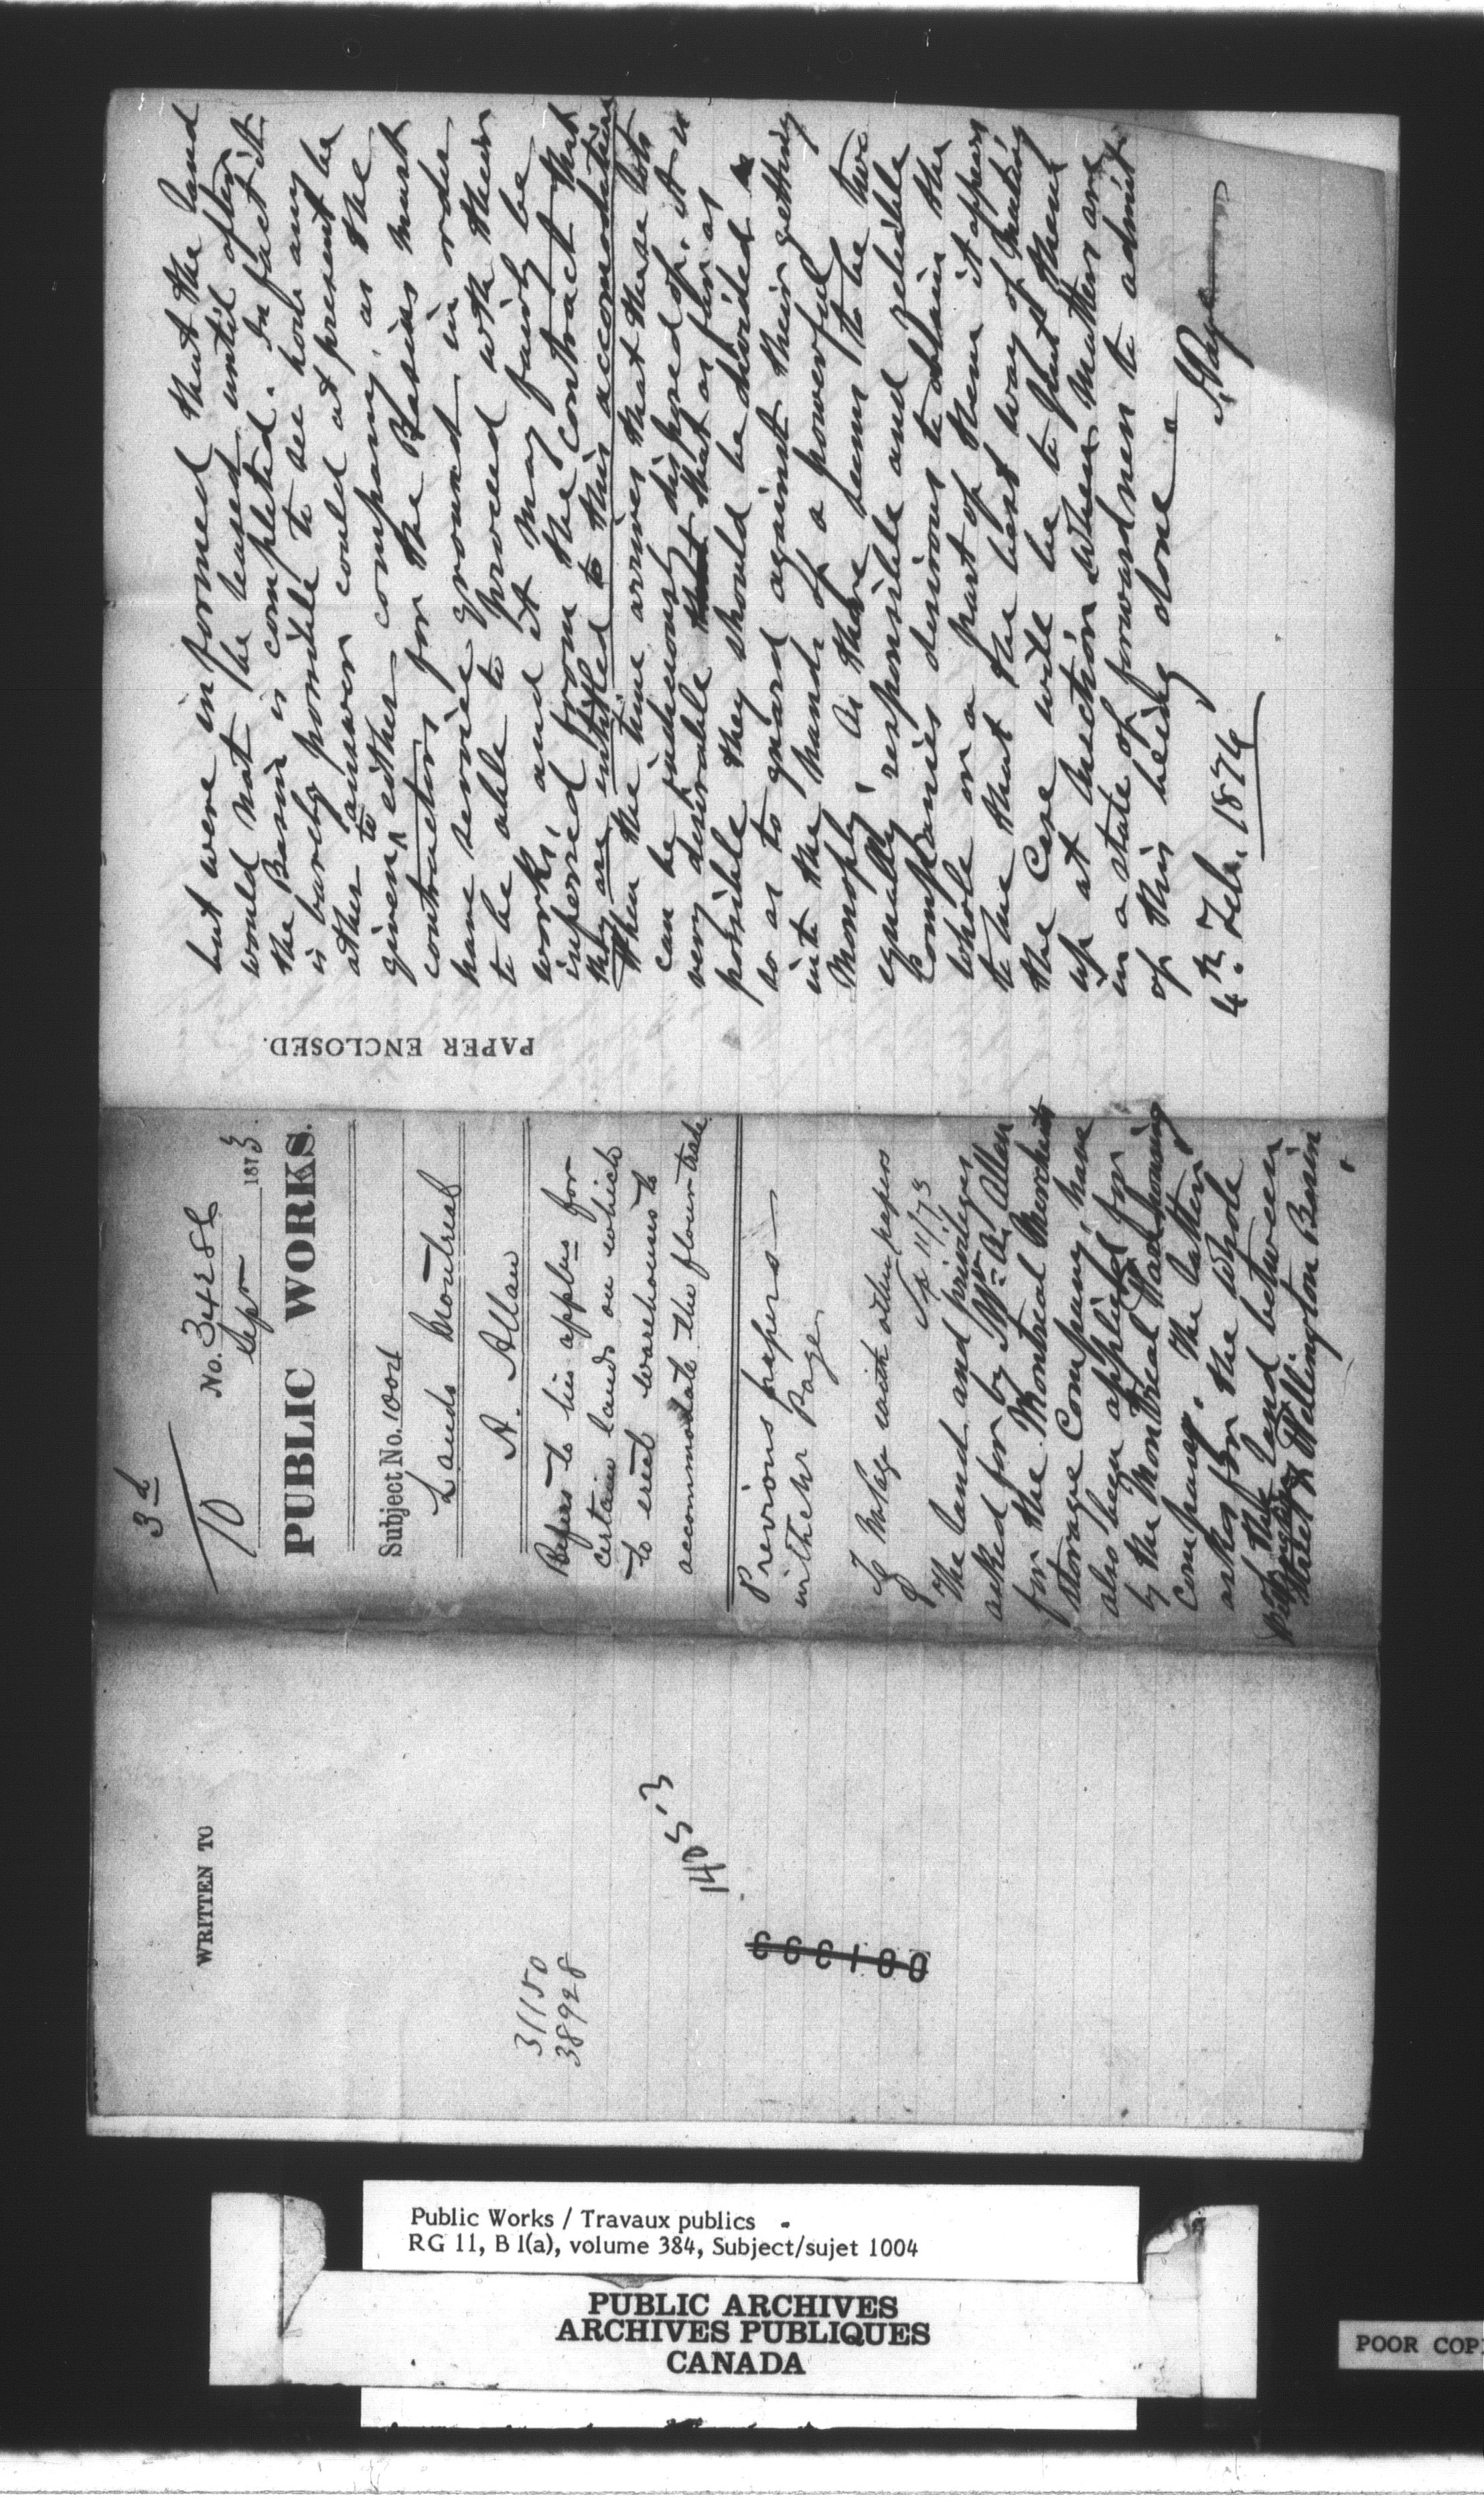 3d
10
No. 34288
Sepr 1873
PUBLIC WORKS.
Subject No. 1004
Lands Montreal
A. Allan
Refers to his applns for
certain lands on which
to erect warehouses to
accommodate the flour trade
Previous papers
with Mr Page
To Mr Page with other papers
11/73
The land and privileges
asked for by Mr A. Allan
for the Montreal Merchants
storage Company, have
also been applied for
by the Montreal Warehousing
Company. The latter
asked for the whole
of the land between
Wellington Basin
but were informed that the land
would not be leased until after
the Basin is completed. In fact it
is barely possible to see how any
other answer could at present be
given to either company, as the
contractors for the Basins must
have service ground in order
to be able to proceed with their
works, and it may fairly be
inferred from the contract that
they are intitled to this accomodation
When the time arrives that these lots
can be judiciously disposed of, it is
very desirable that as far as
possible they should be divided
so as to guard against their getting
into the hands of a powerful
Monoply. As there seems to be two
equally responsible and reliable
Companies desirous to obtain the
whole or a part of them it appears
to me that the best way of meeting
the Case will be to put them
up at Auction when Matters are
in a state of forwardness to admit
of this being done
J. Page
4th Feb. 1874
PAPER ENCLOSED.
WRITTEN TO
31150
38928
1405'3
001333
Public Works / Travaux publics
RG 11, B 1(a), volume 384, Subject/sujet 1004
PUBLIC ARCHIVES
ARCHIVES PUBLIQUES
CANADA
POOR COP